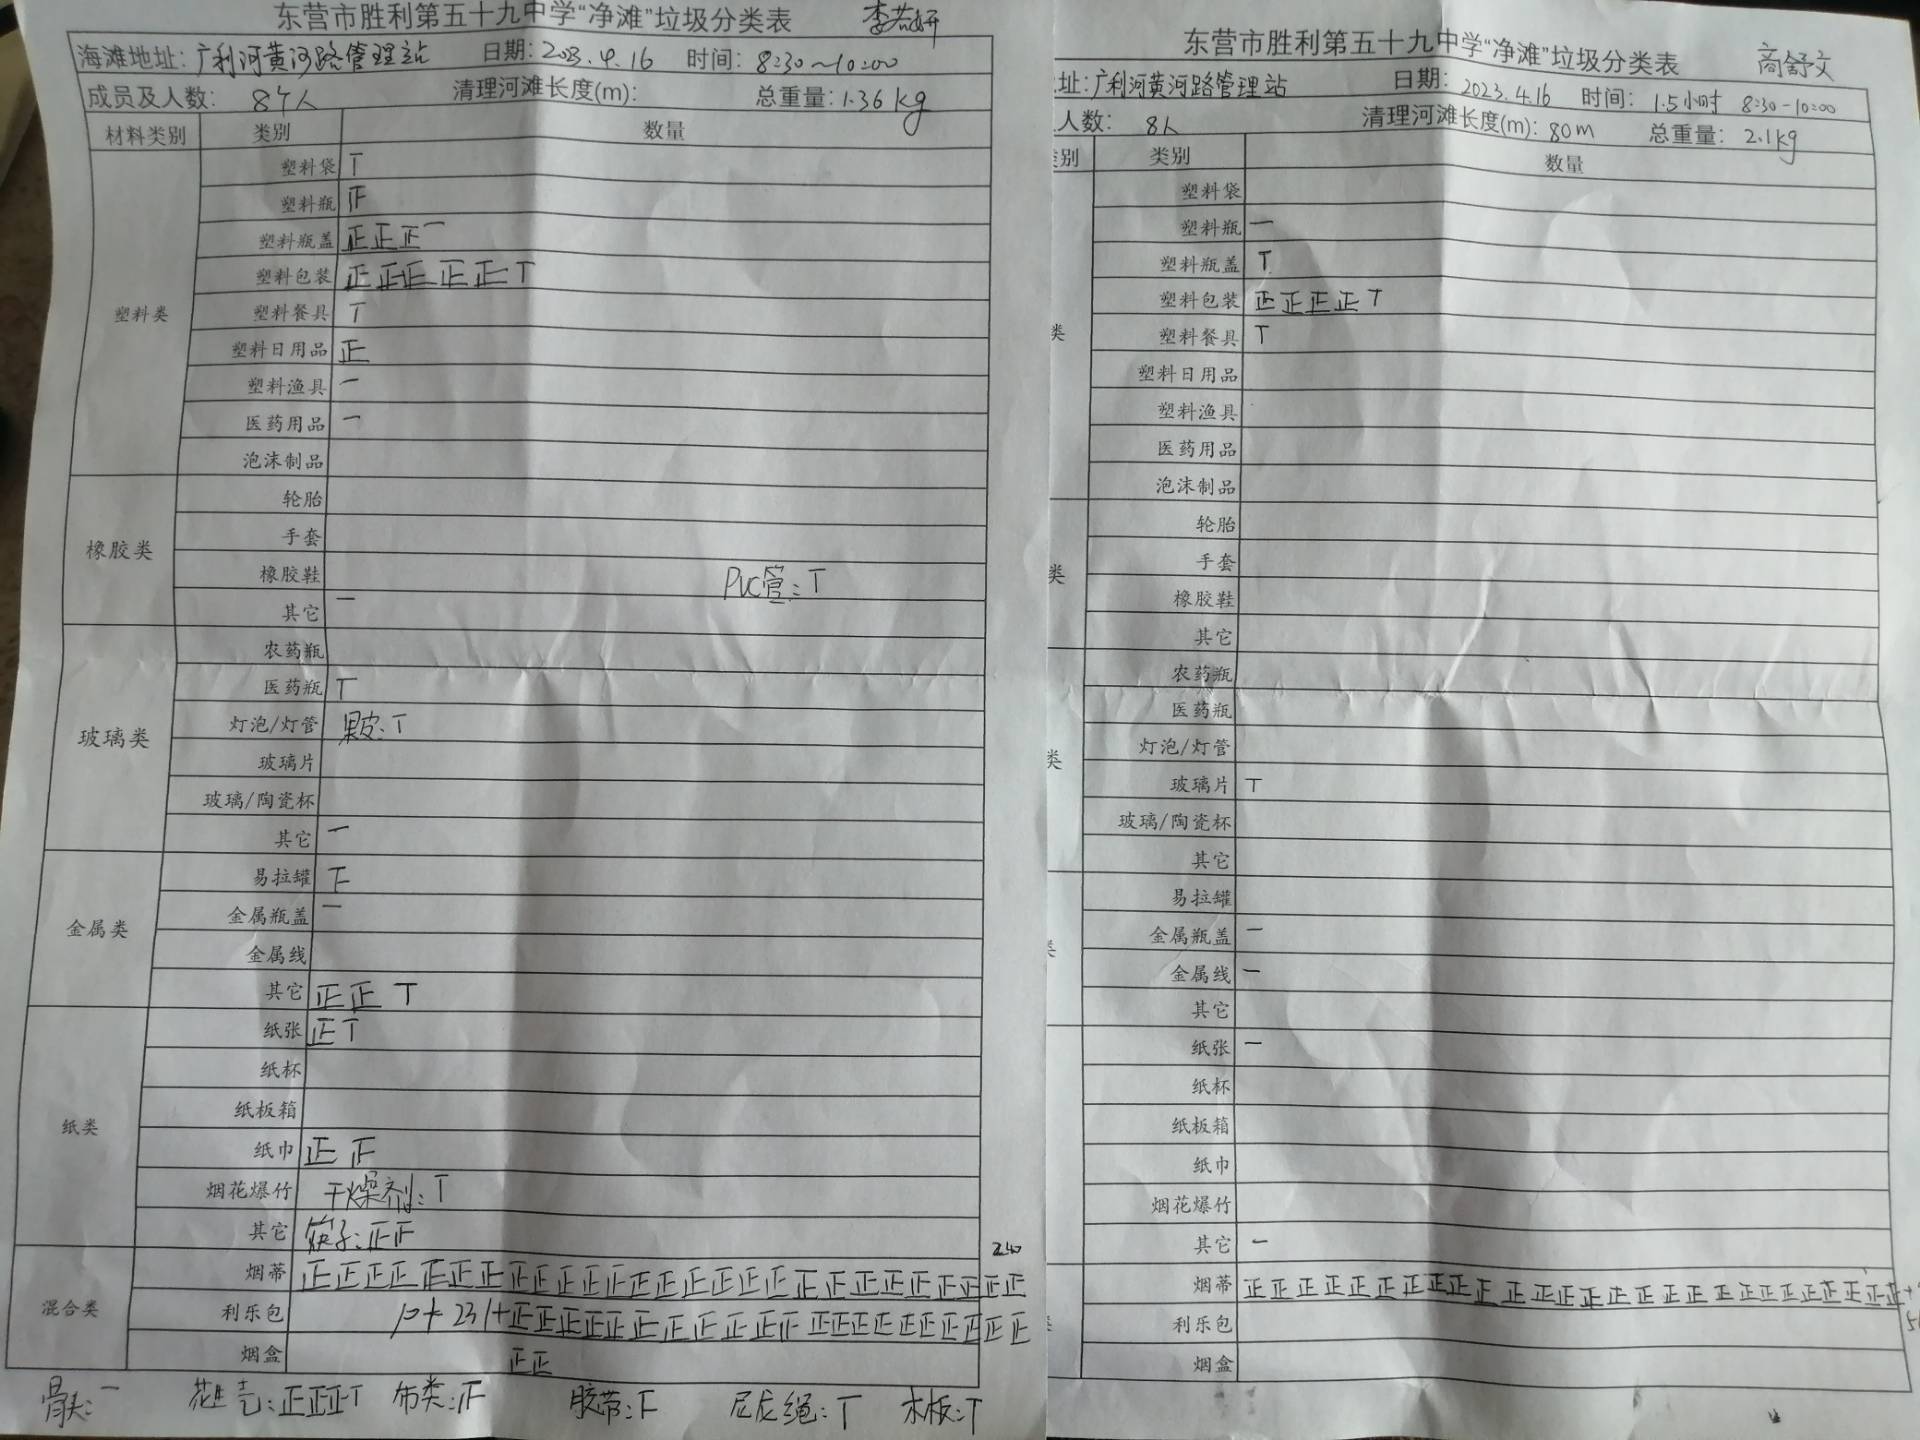 东营市胜利第五十九中学“净滩”垃圾分类表 李若妍
海滩地址：广利河黄河路管理站 日期：2023.4.16 时间：8:30～10:00
成员及人数： 8个人 清理河滩长度(m)： 总重量：1.36kg
材料类别 类别 数量
塑料类
塑料袋 T
塑料瓶
塑料瓶盖 正正正一
塑料包装 正正正正正T
塑料餐具 T
塑料日用品 正
塑料渔具 一
医药用品 一
泡沫制品
橡胶类
轮胎
手套
橡胶鞋 PVC管：T
其它 一
玻璃类
农药瓶
医药瓶 T
灯泡/灯管 果皮：T
玻璃片
玻璃/陶瓷杯
其它 一
金属类
易拉罐
金属瓶盖 一
金属线
其它 正正T
纸类
纸张 正T
纸杯
纸板箱
纸巾 正
烟花爆竹 干燥剂：T
其它 筷子：正
240
混合类
烟蒂 正正正正正正正正正正正正正正正正正正正正正正正正正正正
利乐包
烟盒 正正
骨头：一 布类： 胶带： 尼龙绳：T 木板：T
东营市胜利第五十九中学“净滩”垃圾分类表 商舒文
址：广利河黄河路管理站 日期：2023.4.16 时间：1.5小时 8:30-10:00
人数： 8人 清理河滩长度(m)：80m 总重量：2.1kg
类别 类别 数量
类
塑料袋
塑料瓶 一
塑料瓶盖 T
塑料包装 正正正正T
塑料餐具 T
塑料日用品
塑料渔具
医药用品
泡沫制品
类
轮胎
手套
橡胶鞋
其它
类
农药瓶
医药瓶
灯泡/灯管
玻璃片 T
玻璃/陶瓷杯
其它
类
易拉罐
金属瓶盖 一
金属线 一
其它
纸张 一
纸杯
纸板箱
纸巾
烟花爆竹
其它 一
烟蒂 正正正正正正正正正正正正正正正正正正正正正正正正正正
利乐包
烟盒